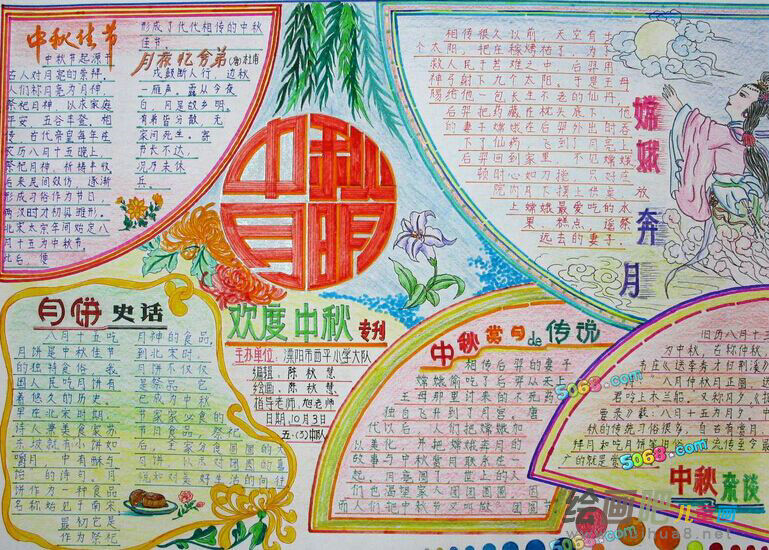 中秋佳节
中秋节起源于
古人对月亮的崇拜，
人们称月亮为月神，
祭祀月神，以求家庭
平安，五谷丰登，相
古代帝皇每年在
农历八月十五晚上，
祭祀月神，祈祷丰收
后来民间效仿，逐渐
形成习俗作为节日
两汉时才初具雏形。
北宋太宗年间始定八
月十五为中秋节。
此后，便
形成了代代相传的中秋
佳节。
月夜忆舍弟
(唐)杜甫
戍鼓断人行，边秋
一雁声。露从今夜
白，月是故乡明。
有弟皆分散，无
家问死生。寄
书长不达，
况乃未休
兵。
中秋
月明
欢度中秋专刊
主办单位：濮阳市西平小学大队
编辑：陈秋慧
绘画：陈秋慧
指导老师：旭老师
日期：10月3日
五.(3)中队
嫦娥奔月
相传很久以前，天空有
个太阳，把庄稼烤枯了，为了
救人民于苦难之中，后羿用
神弓射下九个太阳。于是王母
赐给他一包长生不老的仙丹。
后羿把药藏在枕头底下，他
的妻子嫦娥在后羿外出时吞
下了仙药，飞到了月亮上
后羿回到家里，不见嫦娥
顿时心如刀搅，只好在
院内月下摆上供桌，放
上嫦娥最爱吃的水
果、糕点，遥祭
远去的妻子。
月饼史话
八月十五吃
月饼是中秋佳节
的独特食俗，我
国人民吃月饼有
着悠久的历史，
早在北宋时期，
诗人兼美食家苏
东坡就有小饼如
嚼月，中有酥与
饴的诗句。月
饼作为一种食品
名称始见于南宋
最初它是
作为祭祀
月神的食品，
到北宋时，
月饼不仅仅
是祭品，它
已成为中秋
节家家必食的
节日食品，祭祀
后，全家分食圆圆的
月饼，
和对美好生活的向往
中秋赏月de传说
相传后羿的妻子
嫦娥偷吃了后羿从天上
王母那里讨来的不死药
独自飞升到了月宫，唐
代以后，人们把嫦娥加
以美化，并把嫦娥奔月的
故事与中秋赏月联系在一
起，月亮圆了，世上的人
们也渴望家人团团圆圆，因
而人们把中秋节又叫做团圆
中秋杂谈
旧历八月十五
为中秋，古称仲秋，
八月仲秋月正圆，送
君吃上木兰船
要录》载：八月十五为月夕，中
秋的传统习俗很多，自古有赏月
拜月和吃月饼等习俗，流传至今最
广的就是赏
5068.com
5068.com
5068.com
5068.com
绘画吧
儿童网
www.huihua8.net